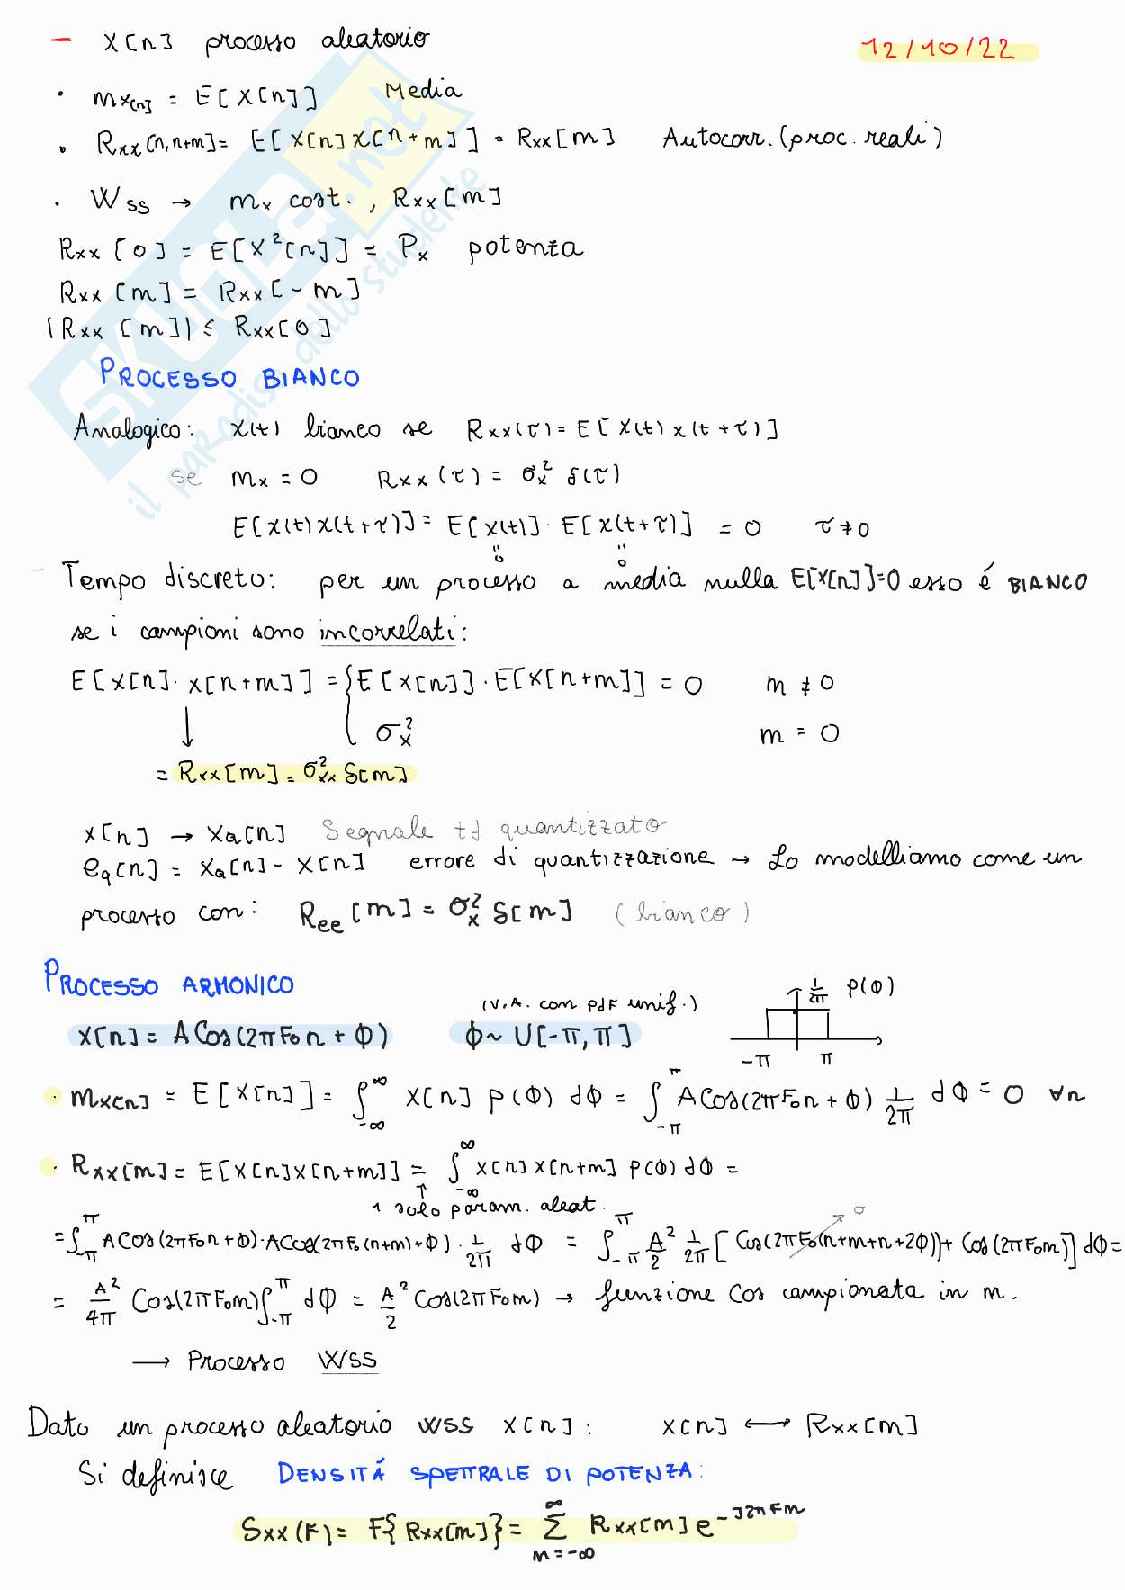 - X[n] processo aleatorio
12/10/22
· mx[n] = E[X[n]] Media
· Rxx[n,n+m] = E[X[n]X[n+m]] = Rxx[m] Autocorr. (proc. reali)
· Wss → mx cost., Rxx[m]
Rxx[0] = E[X²[n]] = Px potenza
Rxx[m] = Rxx[-m]
|Rxx[m]| ≤ Rxx[0]
PROCESSO BIANCO
Analogico: X(t) bianco se Rxx(τ) = E[X(t)x(t+τ)]
se mx = 0 Rxx(τ) = σx² δ(τ)
E[X(t)X(t+τ)] = E[X(t)]·E[X(t+τ)] = 0 τ≠0
" "
0 0
- Tempo discreto: per un processo a media nulla E[X[n]]=0 esso é BIANCO
se i campioni sono incorrelati:
E[X[n]·X[n+m]] = { E[X[n]]·E[X[n+m]] = 0 m ≠ 0
↓ σx² m = 0
= Rxx[m] = σ²xx δ[m]
X[n] → XQ[n] Segnale td quantizzato
eq[n] = XQ[n] - X[n] errore di quantizzazione → Lo modelliamo come un
processo con: Ree[m] = σx² δ[m] (bianco)
PROCESSO ARMONICO
1/2π p(Φ)
(V.A. con pdf unif.)
X[n] = A Cos(2πF₀n + Φ) Φ ~ U[-π,π]
-π π
· mx[n] = E[X[n]] = ∫_{-∞}^{∞} X[n] p(Φ) dΦ = ∫_{-π}^{π} A Cos(2πF₀n + Φ) 1/2π dΦ = 0 ∀n
· Rxx[m] = E[X[n]X[n+m]] = ∫_{-∞}^{∞} X[n]X[n+m] p(Φ) dΦ =
↑
1 solo param. aleat.
= ∫_{-π}^{π} A Cos(2πF₀n+Φ)·A Cos(2πF₀(n+m)+Φ)·1/2π dΦ = ∫_{-π}^{π} A²/2 1/2π [Cos(2πF₀(n+m+n+2Φ)) + Cos(2πF₀m)] dΦ =
0
= A²/4π Cos(2πF₀m) ∫_{-π}^{π} dΦ = A²/2 Cos(2πF₀m) → funzione Cos campionata in m.
→ Processo WSS
Dato un processo aleatorio WSS X[n]: X[n] ↔ Rxx[m]
Si definisce DENSITÁ SPETTRALE DI POTENZA:
Sxx(F) = F{Rxx[m]} = ∑_{m=-∞}^{∞} Rxx[m] e^{-J2πFm}
SKUOLA.net
il paradiso dello studente